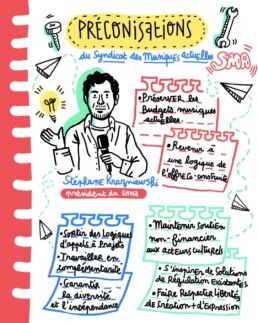 PRÉCONISATIONS
du Syndicat des Musiques actuelles
SMA
• Préserver les
Budgets musiques
actuelles
• Revenir à
une logique de
l'offre Co-construite
Stéphane Krasniewski
président du SMA
• Sortir des Logiques
d'appels à Projets
• Travailler en
complémentarité
• Garantir
la diversité
et l'indépendance
• Maintenir soutien
non-financier
aux acteurs culturels
• S'inspirer de Solutions
de Régulation Existantes
• Faire Respecter libertés
de Création + d'Expression